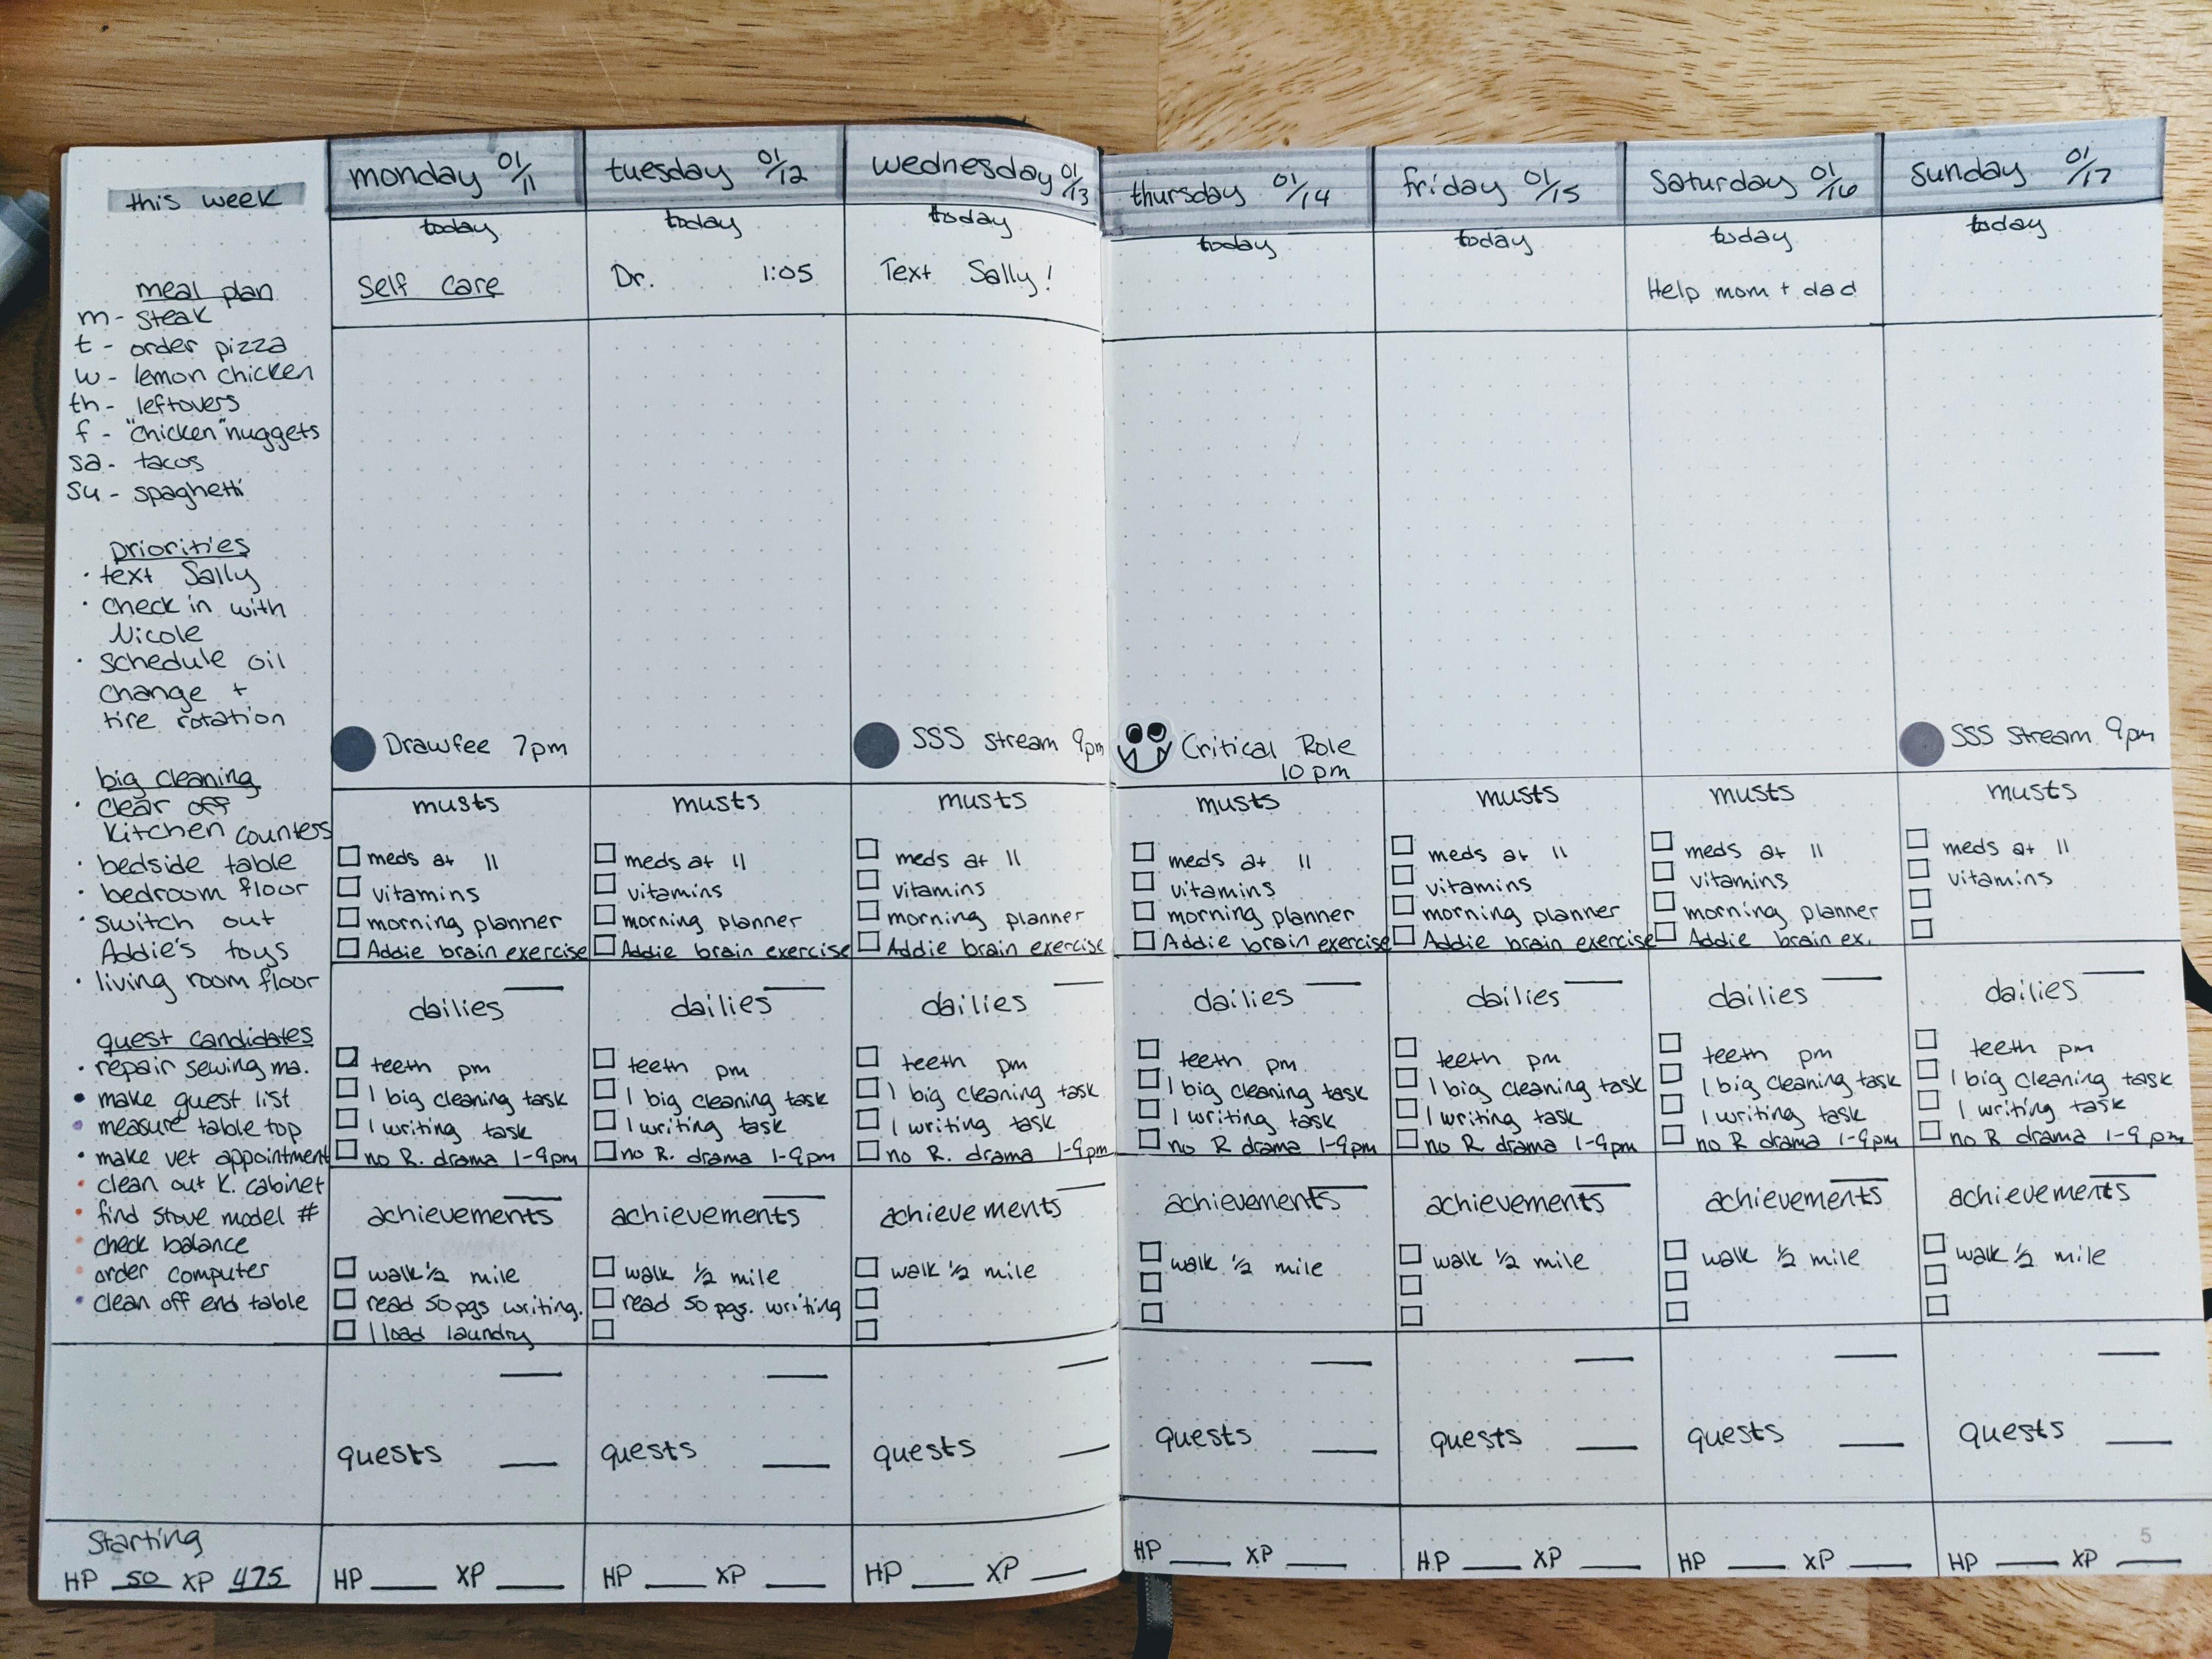 this week
meal plan
m - steak
t - order pizza
w - lemon chicken
th - leftovers
f - "chicken" nuggets
sa - tacos
su - spaghetti
priorities
· text Sally
· check in with
Nicole
· schedule oil
change +
tire rotation
big cleaning
· clear off
kitchen counters
· bedside table
· bedroom floor
· switch out
Addie's toys
· living room floor
quest candidates
· repair sewing ma.
· make guest list
· measure table top
· make vet appointment
· clean out K. cabinet
· find stove model #
· check balance
· order computer
· clean off end table
Starting
HP 50 XP 475
monday 01/11
today
Self care
Drawfee 7pm
musts
meds at 11
vitamins
morning planner
Addie brain exercise
dailies
teeth pm
1 big cleaning task
1 writing task
no R. drama 1-9pm
achievements
walk 1/2 mile
read 50 pgs writing.
1 load laundry
quests
HP XP
tuesday 01/12
today
Dr. 1:05
musts
meds at 11
vitamins
morning planner
Addie brain exercise
dailies
teeth pm
1 big cleaning task
1 writing task
no R. drama 1-9pm
achievements
walk 1/2 mile
read 50 pgs. writing
quests
HP XP
wednesday 01/13
today
Text Sally!
SSS Stream 9pm
musts
meds at 11
vitamins
morning planner
Addie brain exercise
dailies
teeth pm
1 big cleaning task
1 writing task
no R. drama 1-9pm
achievements
walk 1/2 mile
quests
HP XP
thursday 01/14
today
Critical Role
10 pm
musts
meds at 11
vitamins
morning planner
Addie brain exercise
dailies
teeth pm
1 big cleaning task
1 writing task
no R drama 1-9pm
achievements
walk 1/2 mile
quests
HP XP
friday 01/15
today
musts
meds at 11
vitamins
morning planner
Addie brain exercise
dailies
teeth pm
1 big cleaning task
1 writing task
no R drama 1-9pm
achievements
walk 1/2 mile
quests
HP XP
saturday 01/16
today
Help mom + dad
musts
meds at 11
vitamins
morning planner
Addie brain ex.
dailies
teeth pm
1 big cleaning task
1 writing task
no R drama 1-9pm
achievements
walk 1/2 mile
quests
HP XP
sunday 01/17
today
SSS Stream 9pm
musts
meds at 11
vitamins
dailies
teeth pm
1 big cleaning task
1 writing task
no R drama 1-9 pm
achievements
walk 1/2 mile
quests
HP XP
5